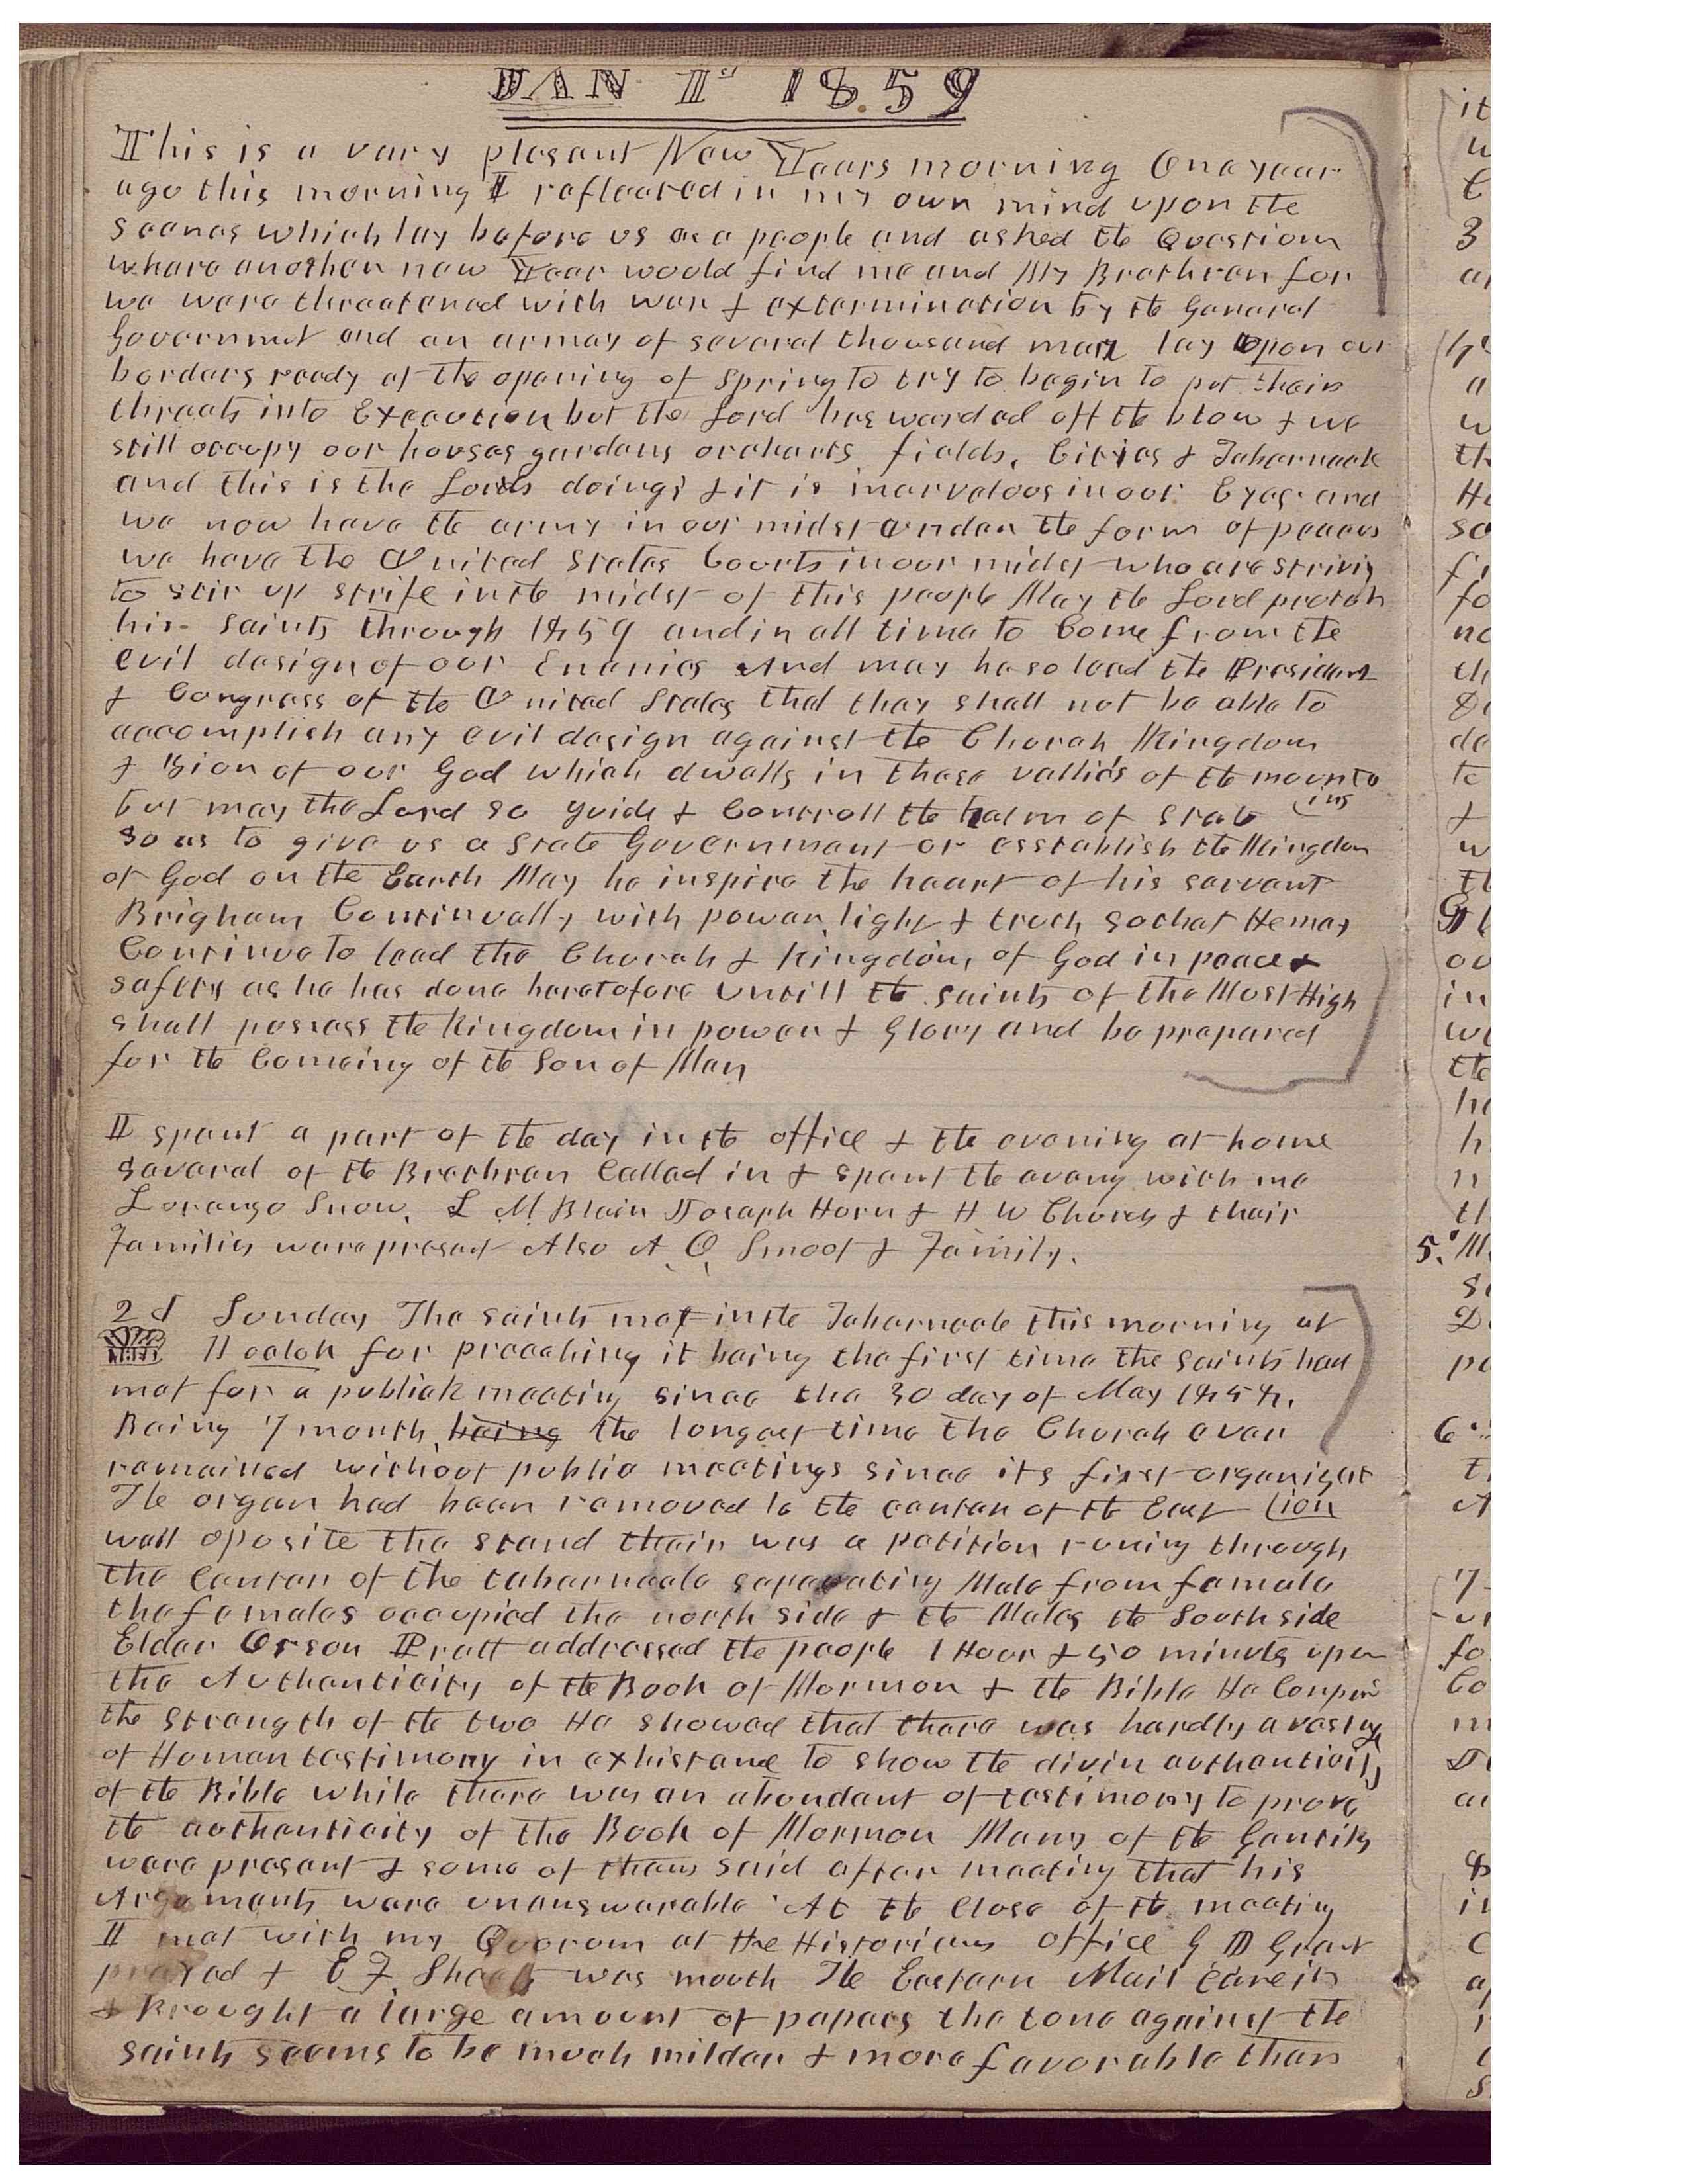 JAN 1st 1859
This is a very plesant New Years morning One year
ago this morning I reflected in my own mind upon the
scenes which lay before us as a people and asked the Question
where another new Year would find me and My Brethren for
we were threatened with war & extermination by the General
Government and an armey of several thousand men lay upon our
borders ready at the opening of Spring to try to begin to put their
threats into Execution but the Lord has warded off the blow & we
still occupy our houses gardens orchards fields, Cities & Tabernacle
and this is the Lords doings & it is marvelous in our Eyes and
we now have the army in our midst under the form of peace
we have the United States Courts in our midst who are striving
to stir up strife in the midst of this people May the Lord protect
his Saints through 1859 and in all time to Come from the
evil design of our Enemies And may he so lead the President
& Congress of the United States that they shall not be able to
accomplish any evil design against the Church Kingdom
& Zion of our God which dwells in these vallies of the mounta
but may the Lord so guide & Controll the helm of State (ins
so as to give us a State Government or esstablish the Kingdom
of God on the Earth May he inspire the heart of his servant
Brigham Continually with power, light & truth so that He may
Continue to lead the Church & Kingdom of God in peace &
safety as he has done heretofore untill the saints of the Most High
shall possess the Kingdom in power & Glory and be prepared
for the Comeing of the Son of Man
I spent a part of the day in the office & the evening at home
several of the Brethren Called in & spent the eveng with me
Lorenzo Snow, Z M. Blair Joseph Horn & H W Church & their
Families were present Also A. O. Smoot & Family.
2d Sunday The saints met in the Tabernacle this morning at
11 oclok for preaching it being the first time the Saints had
met for a publick meeting since the 30 day of May 1858.
Being 7 month, being the longest time the Church ever
remained without public meetings since its first organizat
The organ had been removed to the center of the East (ion
wall oposite the stand their was a petition runing through
the center of the tabernacle separating Male from female
the females occupied the north side & the Males the South side
Elder Orson Pratt addressed the people 1 Hour & 50 minuts upon
the Authenticity of the Book of Mormon & the Bible He Compared
the strength of the two He showed that there was hardly a vestige
of Human testimony in exhistance to show the divin authenticity
of the Bible while there was an abundant of testimony to prove
the authenticity of the Book of Mormon Many of the Gentiles
were present & some of them said after meeting that his
Arguments were unanswerable At the Close of the meeting
I met with my Quorum at the Historians office G D Grant
prayed & E F. Sheets was mouth The Eastern Mail Came in
& Brought a large amount of papers the tone against the
saints seems to be much milder & more favorable than